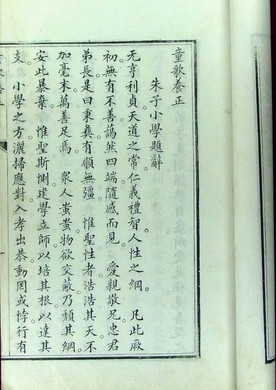 童歌養正
朱子小學題辭
元亨利貞天道之常仁義禮智人性之綱 凡此厥
初無有不善藹然四端隨感而見 愛親敬兄忠君
弟長是曰秉彝有順無彊 惟聖性者浩浩其天不
加毫末萬善足焉 衆人蚩蚩物欲交蔽乃頹其綱
安此暴棄 惟聖斯惻建學立師以培其根以達其
支 小學之方灑掃應對入孝出恭動罔或悖行有